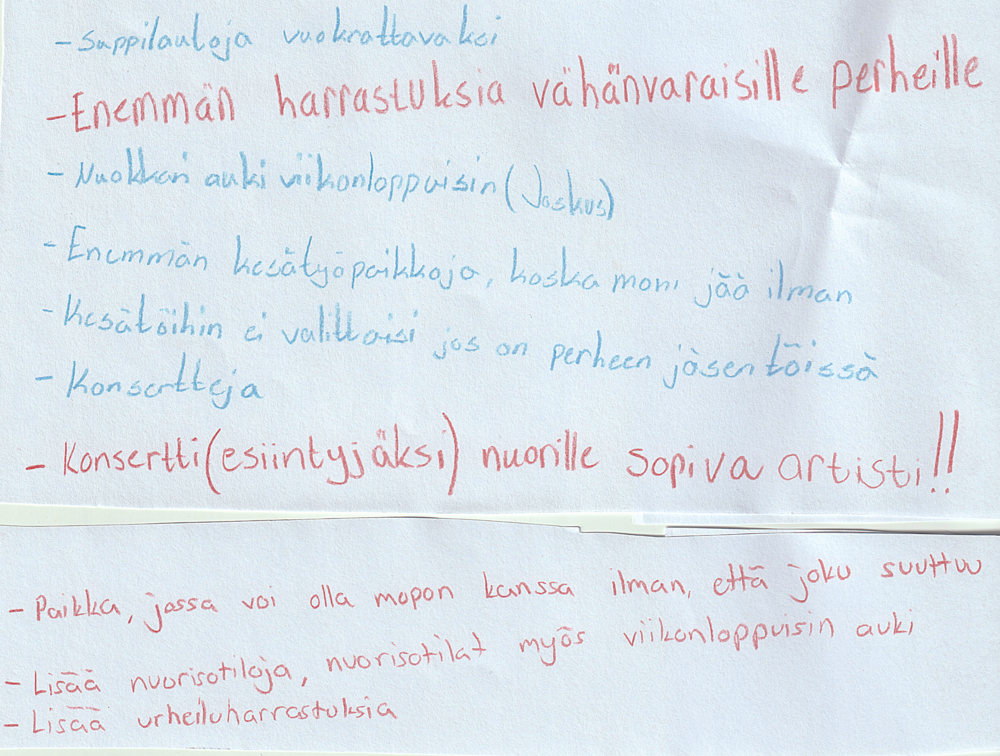 - Suppilautoja vuokrattavaksi
- Enemmän harrastuksia vähänvaraisille perheille
- Nuokkari auki viikonloppuisin (Joskus)
- Enemmän kesätyöpaikkoja, koska moni jää ilman
- Kesätöihin ei valittaisi jos on perheen jäsen töissä
- Konsertteja
- Konsertti (esiintyjäksi) nuorille sopiva artisti!!
- Paikka, jossa voi olla mopon kanssa ilman, että joku suuttuu
- Lisää nuorisotiloja, nuorisotilat myös viikonloppuisin auki
- Lisää urheiluharrastuksia